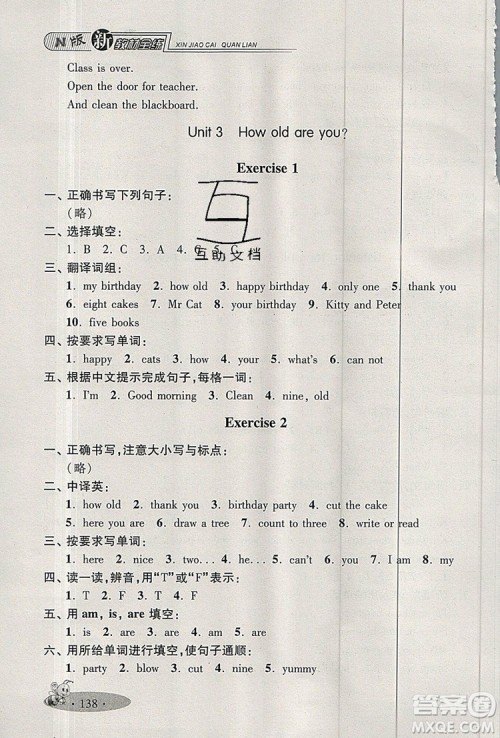 N版 新 教材全练 XIN JIAO CAI QUAN LIAN
Class is over.
Open the door for teacher.
And clean the blackboard.
Unit 3 How old are you?
Exercise 1
一、正确书写下列句子：
（略）
二、选择填空：
1. B 2. C 3. A 4. C 5. C
三、翻译词组：
1. my birthday 2. how old 3. happy birthday 4. only one 5. thank you
6. eight cakes 7. Mr Cat 8. your birthday 9. Kitty and Peter
10. five books
四、按要求写单词：
1. happy 2. cats 3. how 4. your 5. what's 6. can not
五、根据中文提示完成句子，每格一词：
1. I'm 2. Good morning 3. Clean 4. nine, old
Exercise 2
一、正确书写，注意大小写与标点：
（略）
二、中译英：
1. how old 2. thank you 3. birthday party 4. cut the cake
5. here you are 6. draw a tree 7. count to ten 8. write or read
三、按要求写单词：
1. here 2. nice 3. two... 4. he... 5. can't 6. you 7. I 8. my
四、读一读，辨音，用“T”或“F”表示：
1. T 2. F 3. F 4. T 5. F
五、用 am, is, are 填空：
1. is 2. are 3. is 4. are
六、用所给单词进行填空，使句子通顺：
1. party 2. blow 3. cut 4. nine 5. yummy
· 138 ·
互助文档
作业帮
MXQE.COM